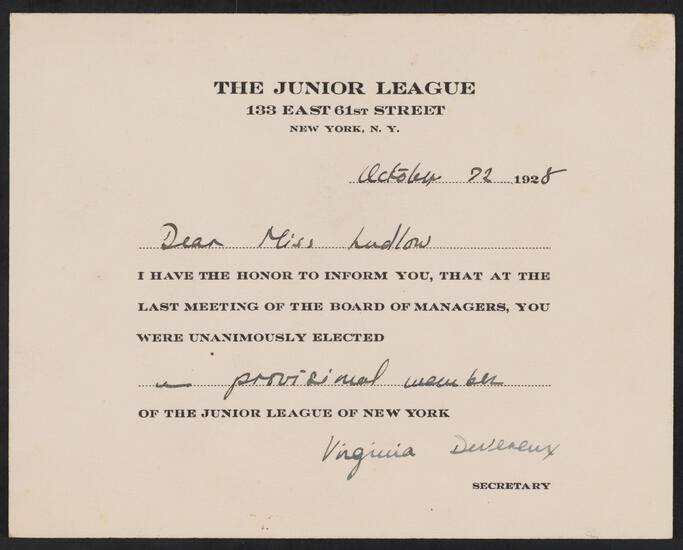 THE JUNIOR LEAGUE
133 EAST 61ST STREET
NEW YORK, N. Y.
October 22 1928
Dear Miss Ludlow
I HAVE THE HONOR TO INFORM YOU, THAT AT THE
LAST MEETING OF THE BOARD OF MANAGERS, YOU
WERE UNANIMOUSLY ELECTED
a provisional member
OF THE JUNIOR LEAGUE OF NEW YORK
Virginia Devereux
SECRETARY